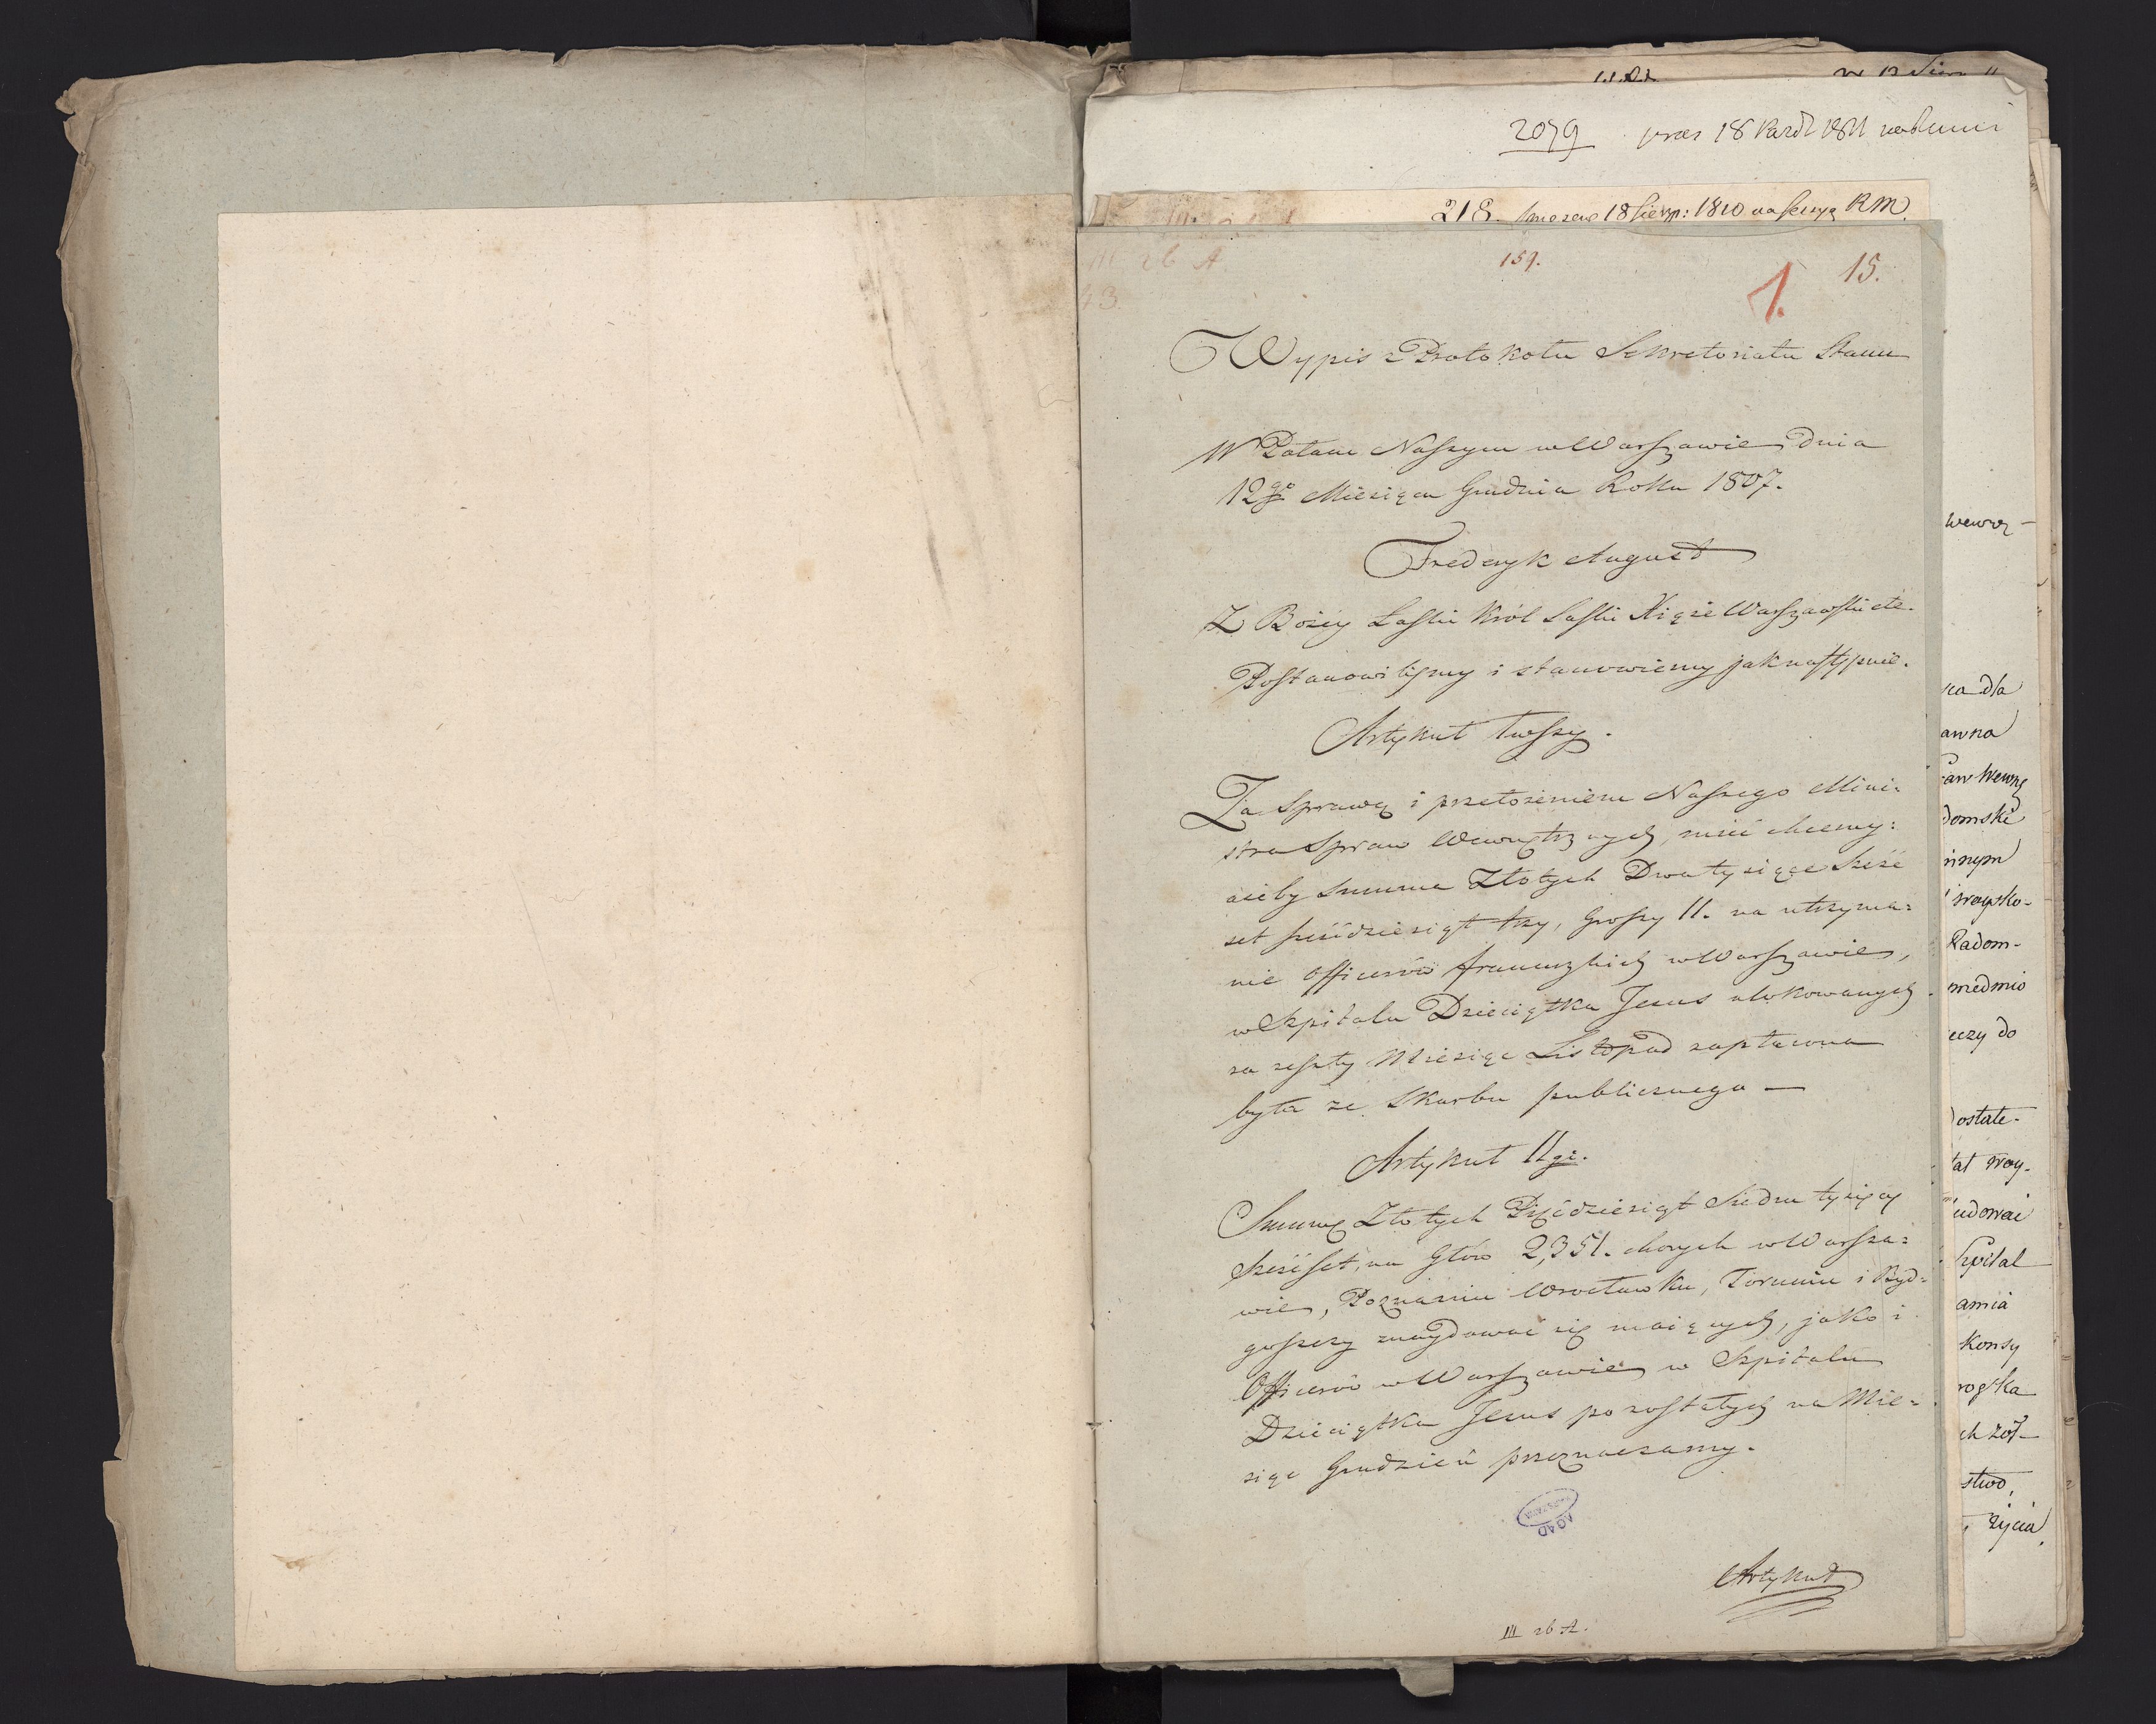 2079 praes 18 Paźdź 1811
218. 18 Sierp: 1810 na Sessyą RM.
III 26 A 159. 1. 15.
43
Wypis z Protokołu Sekretariatu Stanu
W Pałacu Naszym w Warszawie Dnia
12go Miesiąca Grudnia Roku 1807.
Frederyk August
Z Bożey Łaski Król Saski Xiąże Warszawski etc.
Postanowilismy i stanowiemy jak następuie.
Artykuł 1wszy.
Za Sprawą i przełożeniem Naszego Mini:
stra Spraw Wewnętrznych, mieć chcemy:
ażeby Summa Złotych Dwa tysiące Sześć
set sześćdziesiąt trzy, Groszy 11. na utrzyma:
nie Officerów francuzkich w Warszawie,
w Szpitalu Dzieciątka Jesus ulokowanych
za zeszły Miesiąc Listopad zapłacona
była ze Skarbu publicznego —
Artykuł IIgi.
Summę Złotych Pięćdziesiąt Siedm tysięcy
sześćset, na Głów 2,351. chorych w Warsza:
wie, Poznaniu Wrocławku, Toruniu i Byd:
goszczy znaydować się maiących, jako i
Officerów w Warszawie w Szpitalu
Dzieciątka Jesus pozostałych na Mie:
siąc Grudzień przeznaczamy.
AGAD
WARSZAWA
Artykuł
III 26 A.
wewną-
ca dla
awna
raw Wewną
domski
innym
Radom-
miedmio
eczy do
ostate-
tat woy-
udować
Szpital
amia
Konsy
ch żoł-
stwo,
, życia